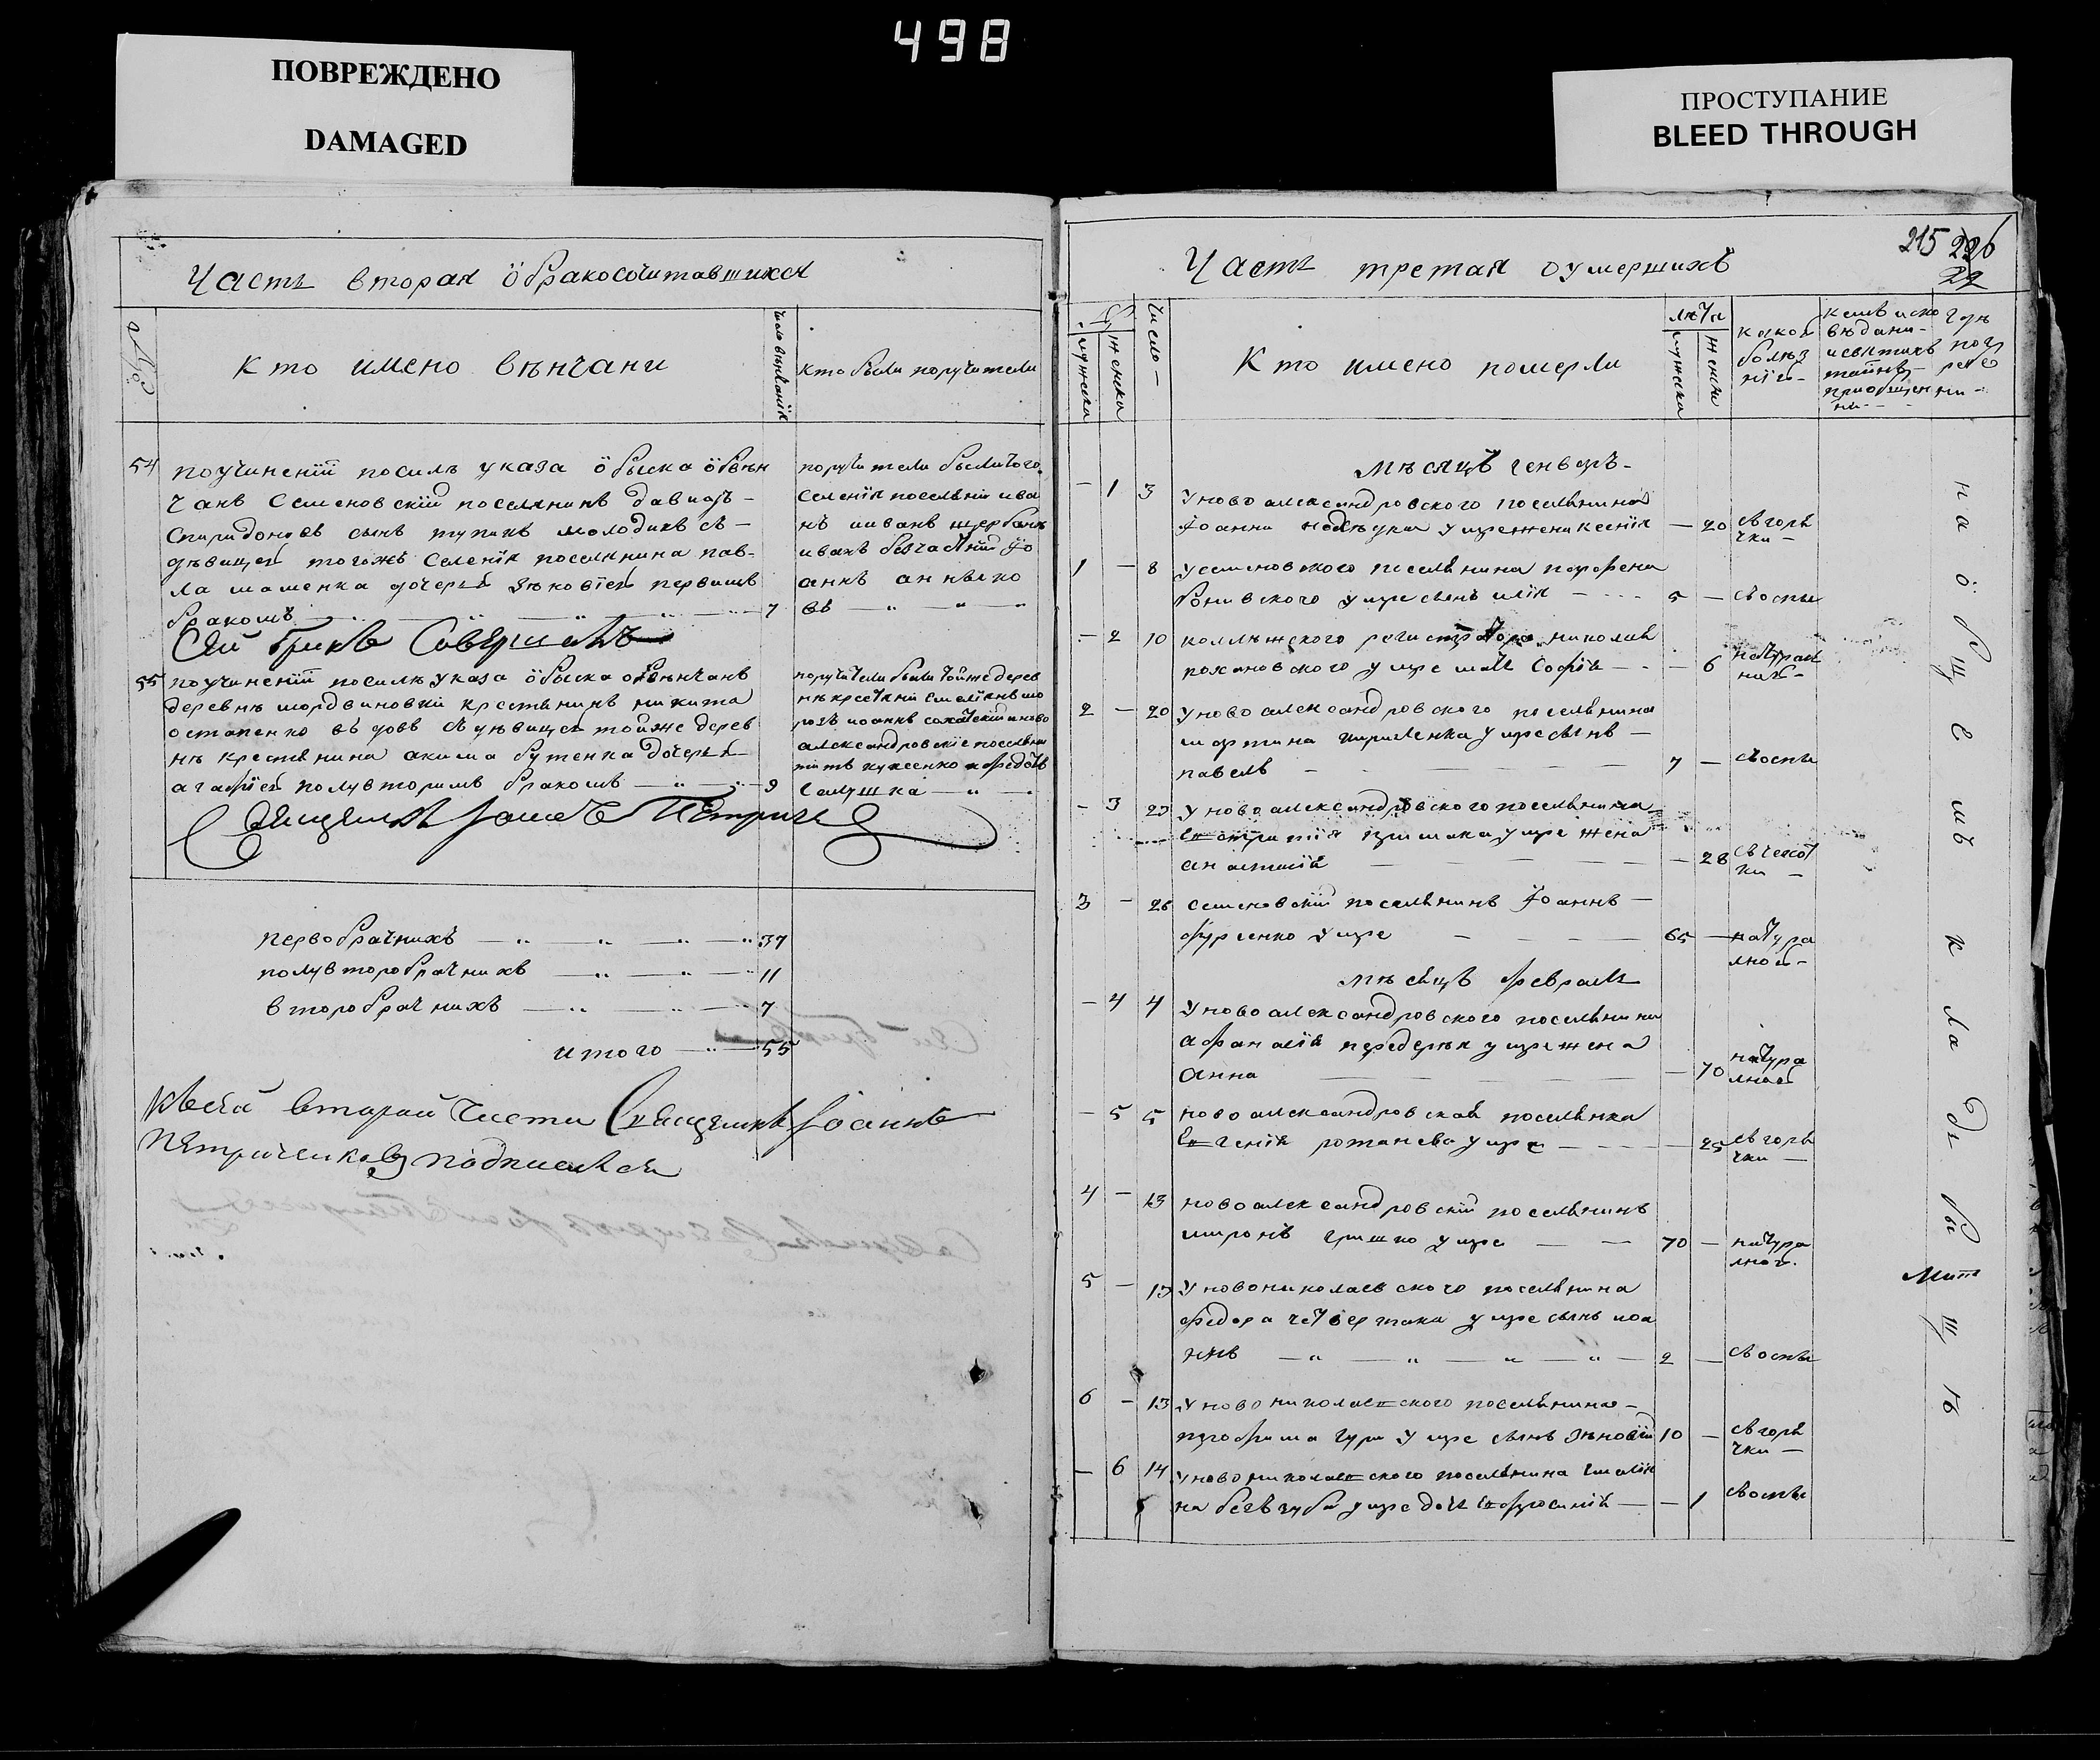 498
ПОВРЕЖДЕНО
DAMAGED
ПРОСТУПАНИЕ
BLEED THROUGH
Часть вторая ӧбракосочитавшихся
№
кто имено вѣнчани
число вѣнчанія
кто были поручители
54 поучиненїй посилѣ указа ӧбыска ӧбвѣн
чанъ Семеновскїй поселянинъ давидъ
Спиридоновъ сынъ тупикъ молодикъ съ
дѣвицей тогожъ Селенія поселянина пав
ла дочерью Зѣновїей первимъ
бракомъ 7
поручители были того
Селенія поселяни ива
нъ иванъ щербань
иванъ безчастній Ӏо
аннъ
въ
Сей бракъ Совершалъ
55 поучиненїй посилѣ указа ӧбыска обвѣнчанъ
деревнѣ мордвиновки крестянинъ никита
остапенко вдовъ съ дѣвицей тойже дерев
нѣ крестянина акима бутенка дочерью
агафїей полувторимъ бракомъ 9
поручители были тойже дерев
нѣ крестяни Емелїянъ мо
розъ иоаннъ и ново
александровскїе поселяни
титъ куксенко и федотъ
Галушка
Священникъ Іоаннъ Петриченко
первобрачнихъ 37
полувторобрачнихъ 11
второбрачнихъ 7
итого 55
К всей второй части Священникъ Іоаннъ
Петриченковъ подписался
215 226
22
Часть третая оумершихъ
мужеска
женска
число
Кто имено померли
лѣта
мужска
женски
какой
болѣз
нїю
кемъ испо
вѣдани
и святихъ
тайнъ
приобщен
ни
гдѣ
погр
ребе
ни
мѣсяцъ генваръ
1 3 Уново александровского поселянина
Ӏоанна умре жена ксенія 20 съ горя
чки
1 8 у семеновского поселянина парфена
бонивского умре сынъ илія 5 съ оспы
2 10 коллежского регистратора николая
умре мать Софія 6 натурал
ною
2 20 Уново александровского поселянина
мартина кириленка умре сынъ
павелъ 7 съ оспы
3 23 Уново александровского поселянина
Евстратія примака умре жена
анастасія 28 съ чехот
ки
3 26 семеновскїй поселянинъ Ӏоаннъ
фурсенко умре 65 натура
лной
мѣсяцъ февраль
4 4 Уново александровского поселянина
афанасія передерѣя умре жена
анна 70 натура
лной
5 5 ново александровская поселянка
Евгенія ротанева умре 25 съ горя
чки
4 13 новоалександровскїй поселянинъ
миронъ гришко умре 70 натура
лною
5 13 Уновониколаевского поселянина
федора четвертака умре сынъ иоа
ннъ 2 съ оспы
6 13 Уново николаевского поселянина
трофима гури умре сынъ Зѣновїй 10 съ горя
чки
6 14 Уново николаевского поселянина Емелія
на беззуба умре дочь Евфросинія 1 съ оспы
на ӧбщемъ кладбыщѣ